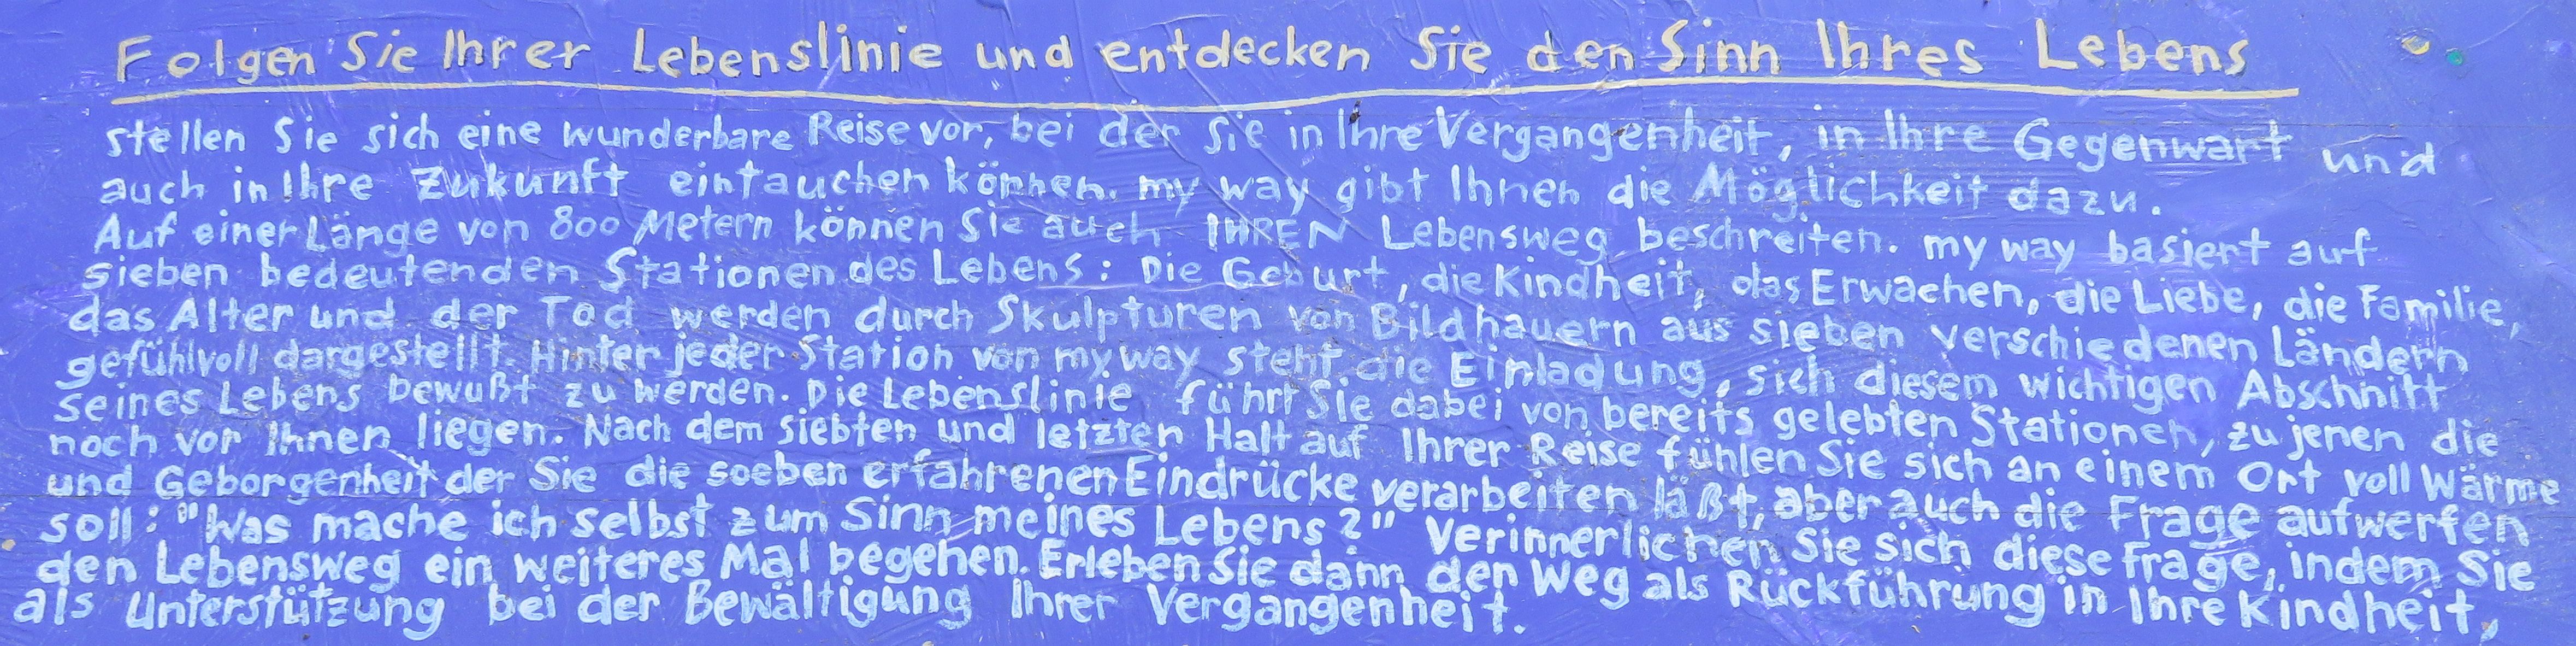 Folgen Sie Ihrer Lebenslinie und entdecken Sie den Sinn Ihres Lebens
stellen Sie sich eine wunderbare Reise vor, bei der Sie in Ihre Vergangenheit, in Ihre Gegenwart und
auch in Ihre Zukunft eintauchen können. my way gibt Ihnen die Möglichkeit dazu.
Auf einer Länge von 800 Metern können Sie auch IHREN Lebensweg beschreiten. my way basiert auf
sieben bedeutenden Stationen des Lebens: Die Geburt, die Kindheit, das Erwachen, die Liebe, die Familie,
das Alter und der Tod werden durch Skulpturen von Bildhauern aus sieben verschiedenen Ländern
gefühlvoll dargestellt. Hinter jeder Station von my way steht die Einladung, sich diesem wichtigen Abschnitt
seines Lebens bewußt zu werden. Die Lebenslinie führt Sie dabei von bereits gelebten Stationen, zu jenen die
noch vor Ihnen liegen. Nach dem siebten und letzten Halt auf Ihrer Reise fühlen Sie sich an einem Ort voll Wärme
und Geborgenheit der Sie die soeben erfahrenen Eindrücke verarbeiten läßt, aber auch die Frage aufwerfen
soll: "Was mache ich selbst zum Sinn meines Lebens?" Verinnerlichen Sie sich diese Frage, indem Sie
den Lebensweg ein weiteres Mal begehen. Erleben Sie dann den Weg als Rückführung in Ihre Kindheit,
als Unterstützung bei der Bewältigung Ihrer Vergangenheit.